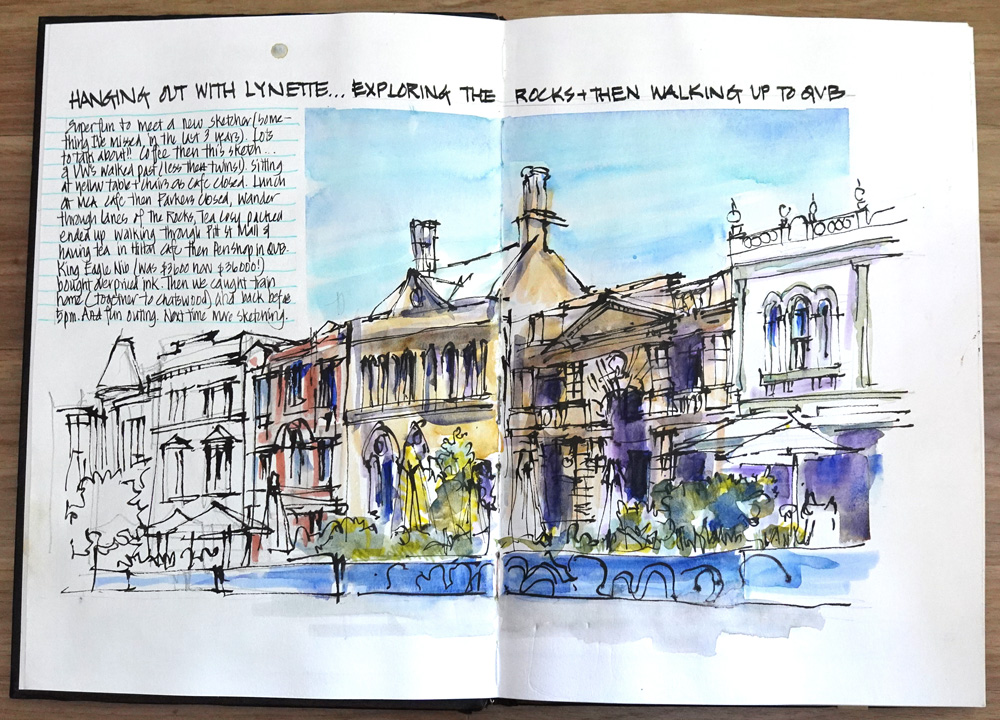 HANGING OUT WITH LYNETTE... EXPLORING THE ROCKS + THEN WALKING UP TO QVB
Super fun to meet a new sketcher (some-
thing I've missed in the last 3 years). Lots
to talk about!! Coffee then this sketch...
& VWs walked past (less the twins!). Sitting
at yellow table + chairs as cafe closed. Lunch
at MCA cafe then Parkers closed, wander
through lanes of The Rocks, Tea Cosy packed
ended up walking through Pitt St Mall &
having tea in Hilton cafe then Pen shop in QVB.
King Eagle Nib (was $3600 now $36000!)
bought overpriced ink. Then we caught train
home (together to Chatswood) and back before
5pm. And fun outing. Next time more sketching.